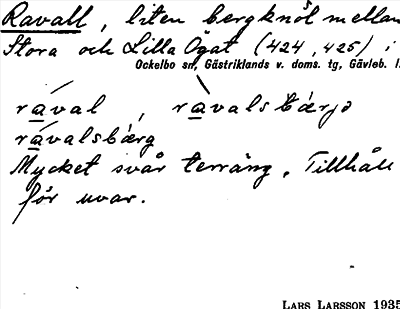 Ravall, liten bergknöl mellan
Stora och Lilla Ögat (424, 425) i
Ockelbo sn, Gästriklands v. doms. tg, Gävleb. l.
råval, råvalsbärjs
råvalsbärg
Mycket svår terräng. Tillhåll
för uvar.
LARS LARSSON 1935